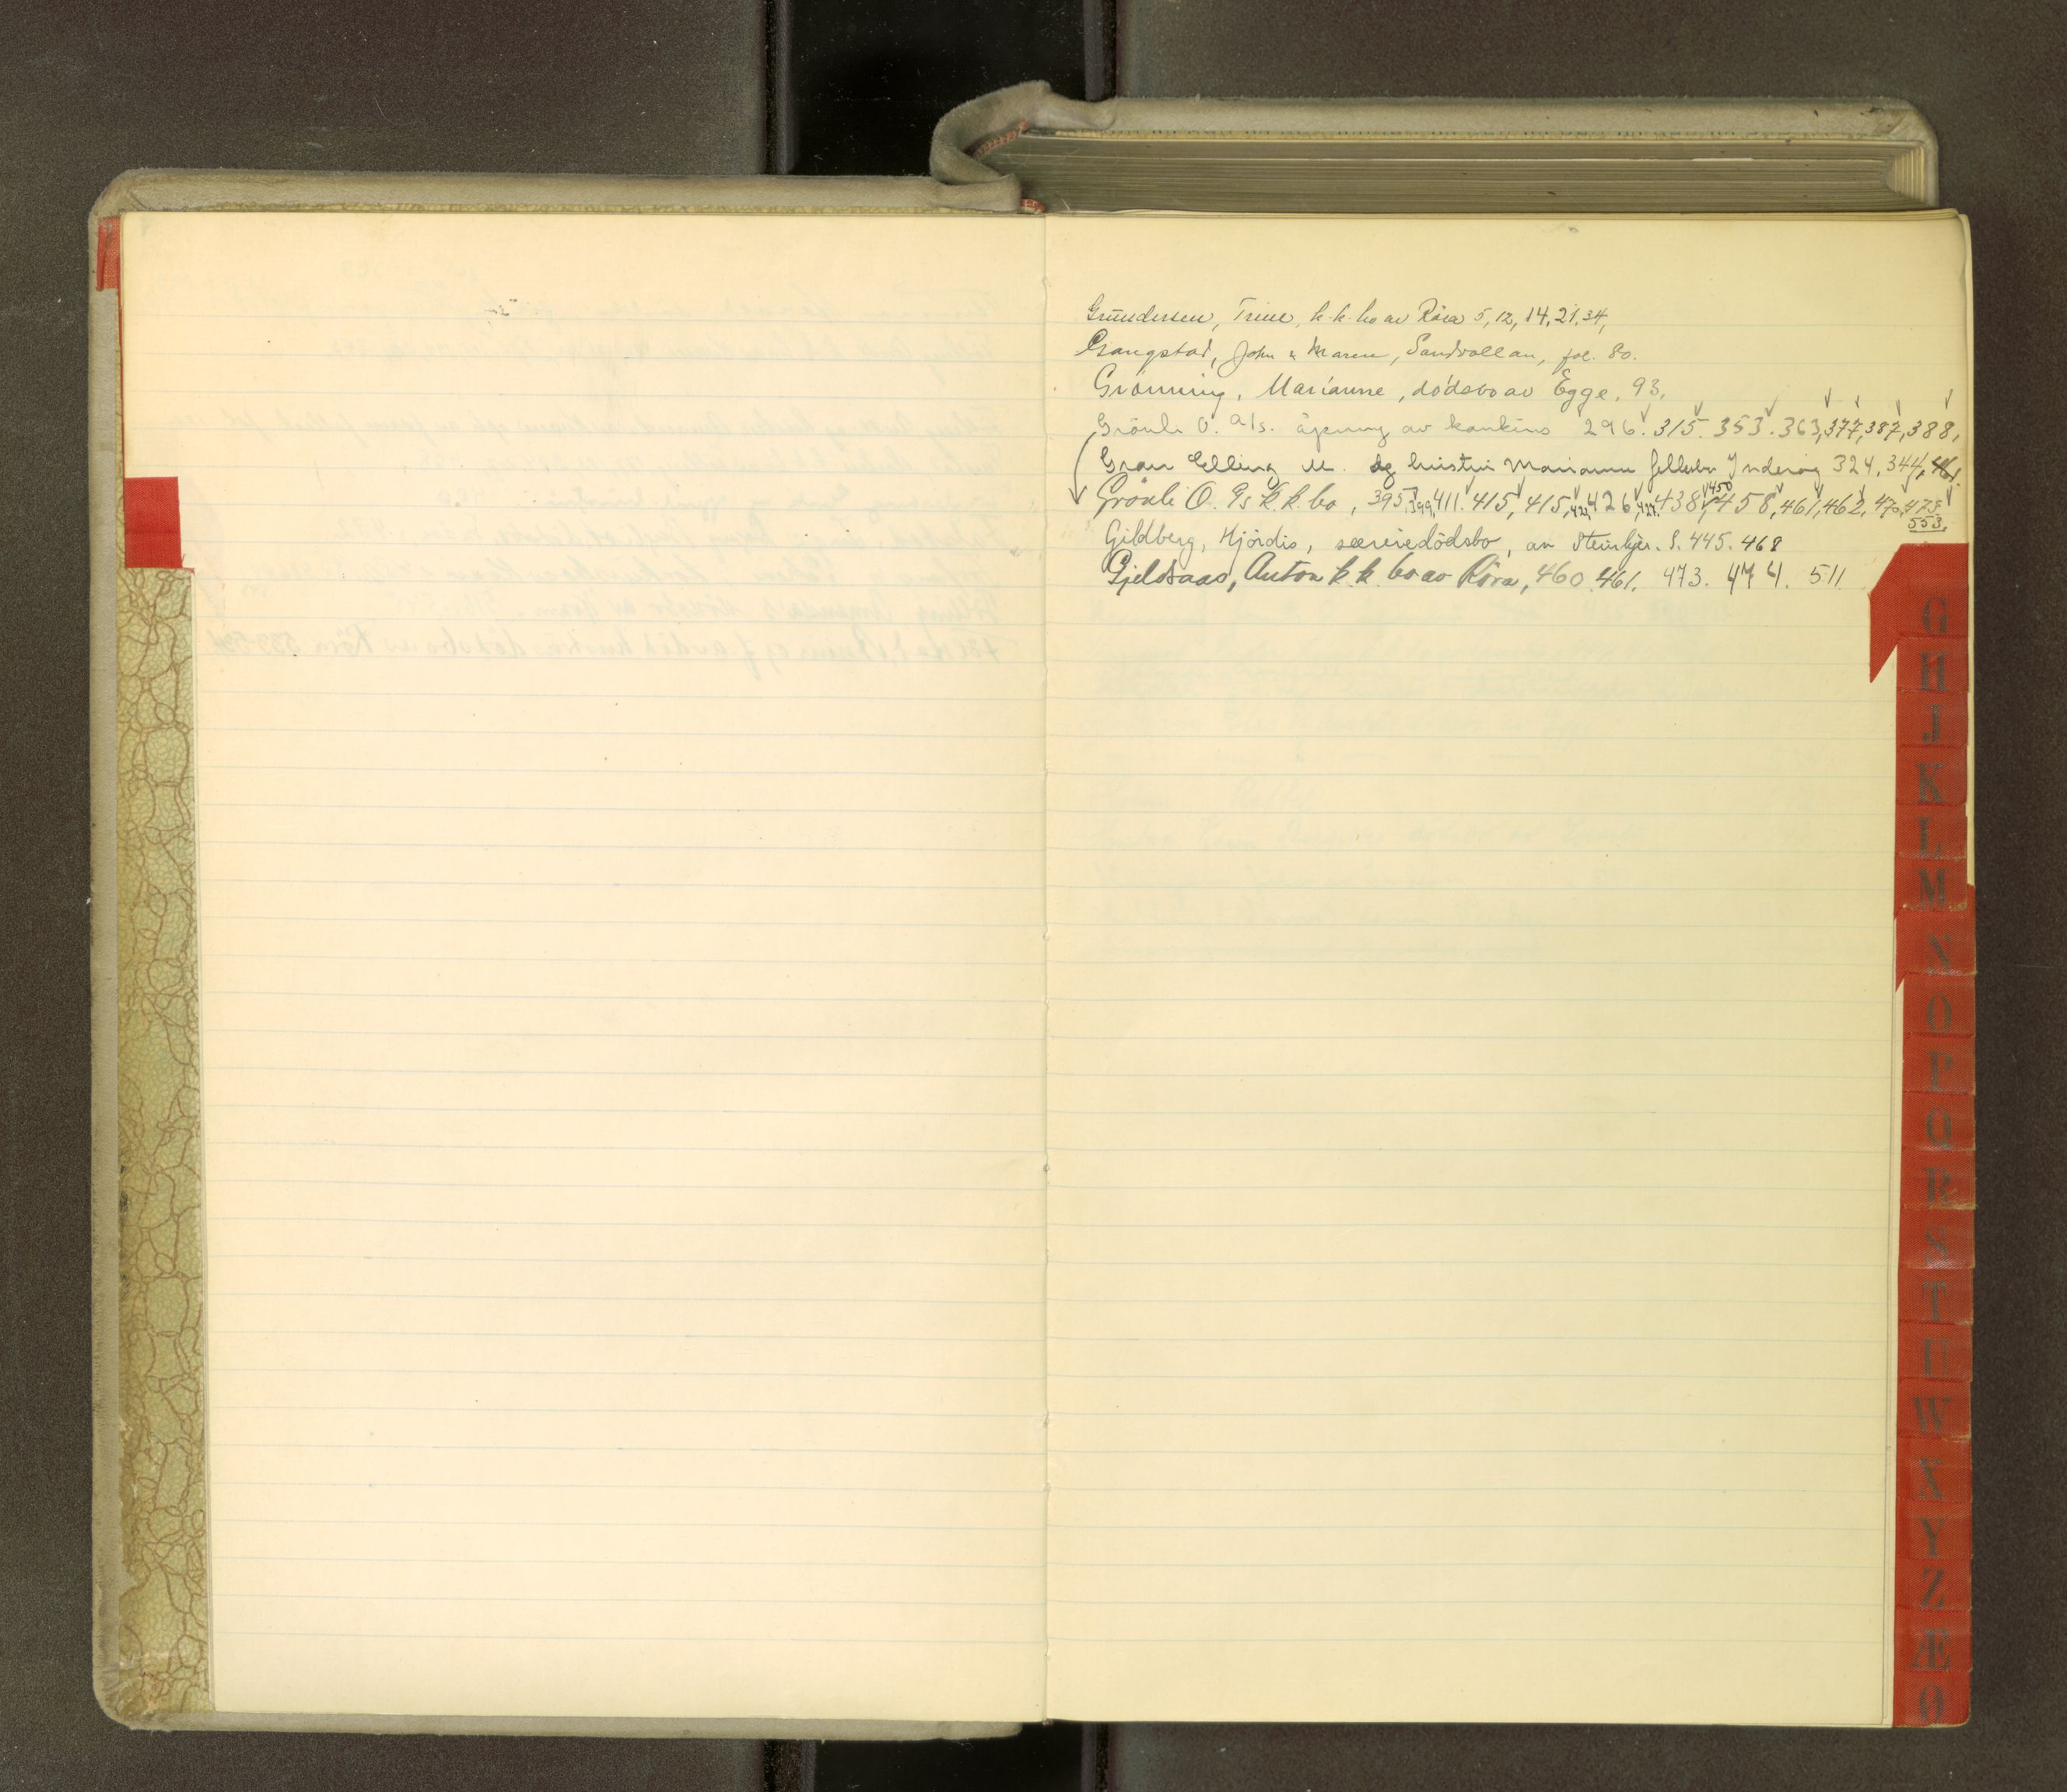 Gundersen, Trine, k.k. bo av Röra 5, 12, 14, 21, 34,
Gangstad, John & Maren, Sandvollan, fol. 80.
Grönning, Marianne, dödsbo av Egge, 93,
Grönli O. A/s. åpning av konkurs 296. 315. 353. 363, 377, 387, 388,
Gran Elling M. og hustru Marianne fellesbo Inderøy 324, 344,
Grönli O. A/s k.k. bo, 395, 399, 411. 415, 415, 422, 426, 427. 438, 450 458, 461, 462, 470, 475,
553,
Gildberg, Hjördis, særeiedödsbo, av Steinkjer. S. 445. 468
Gjeldsaas, Anton k.k. bo av Röra, 460. 461. 473. 474. 511
G
H
J
K
L
M
N
O
P
Q
R
S
T
U
W
X
Y
Z
Æ
Ø